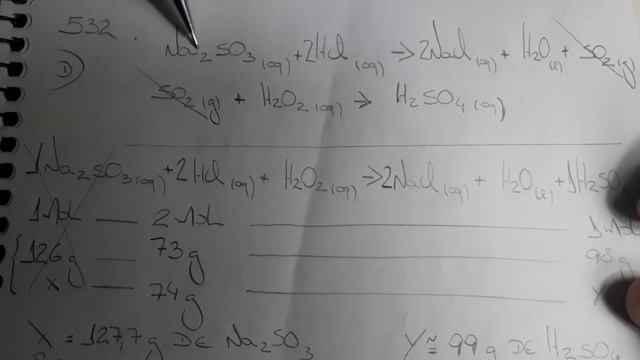 532.
D) Na₂SO₃(aq) + 2HCl(aq) → 2NaCl(aq) + H₂O(ℓ) + SO₂(g)
SO₂(g) + H₂O₂(aq) → H₂SO₄(aq)
1Na₂SO₃(aq) + 2HCl(aq) + H₂O₂(aq) → 2NaCl(aq) + H₂O(ℓ) + 1H₂SO₄
1 mol — 2 mol — 1 mol
126g — 73g — 98g
x — 74g — Y
X = 127,7g DE Na₂SO₃ Y ≅ 99g DE H₂SO₄